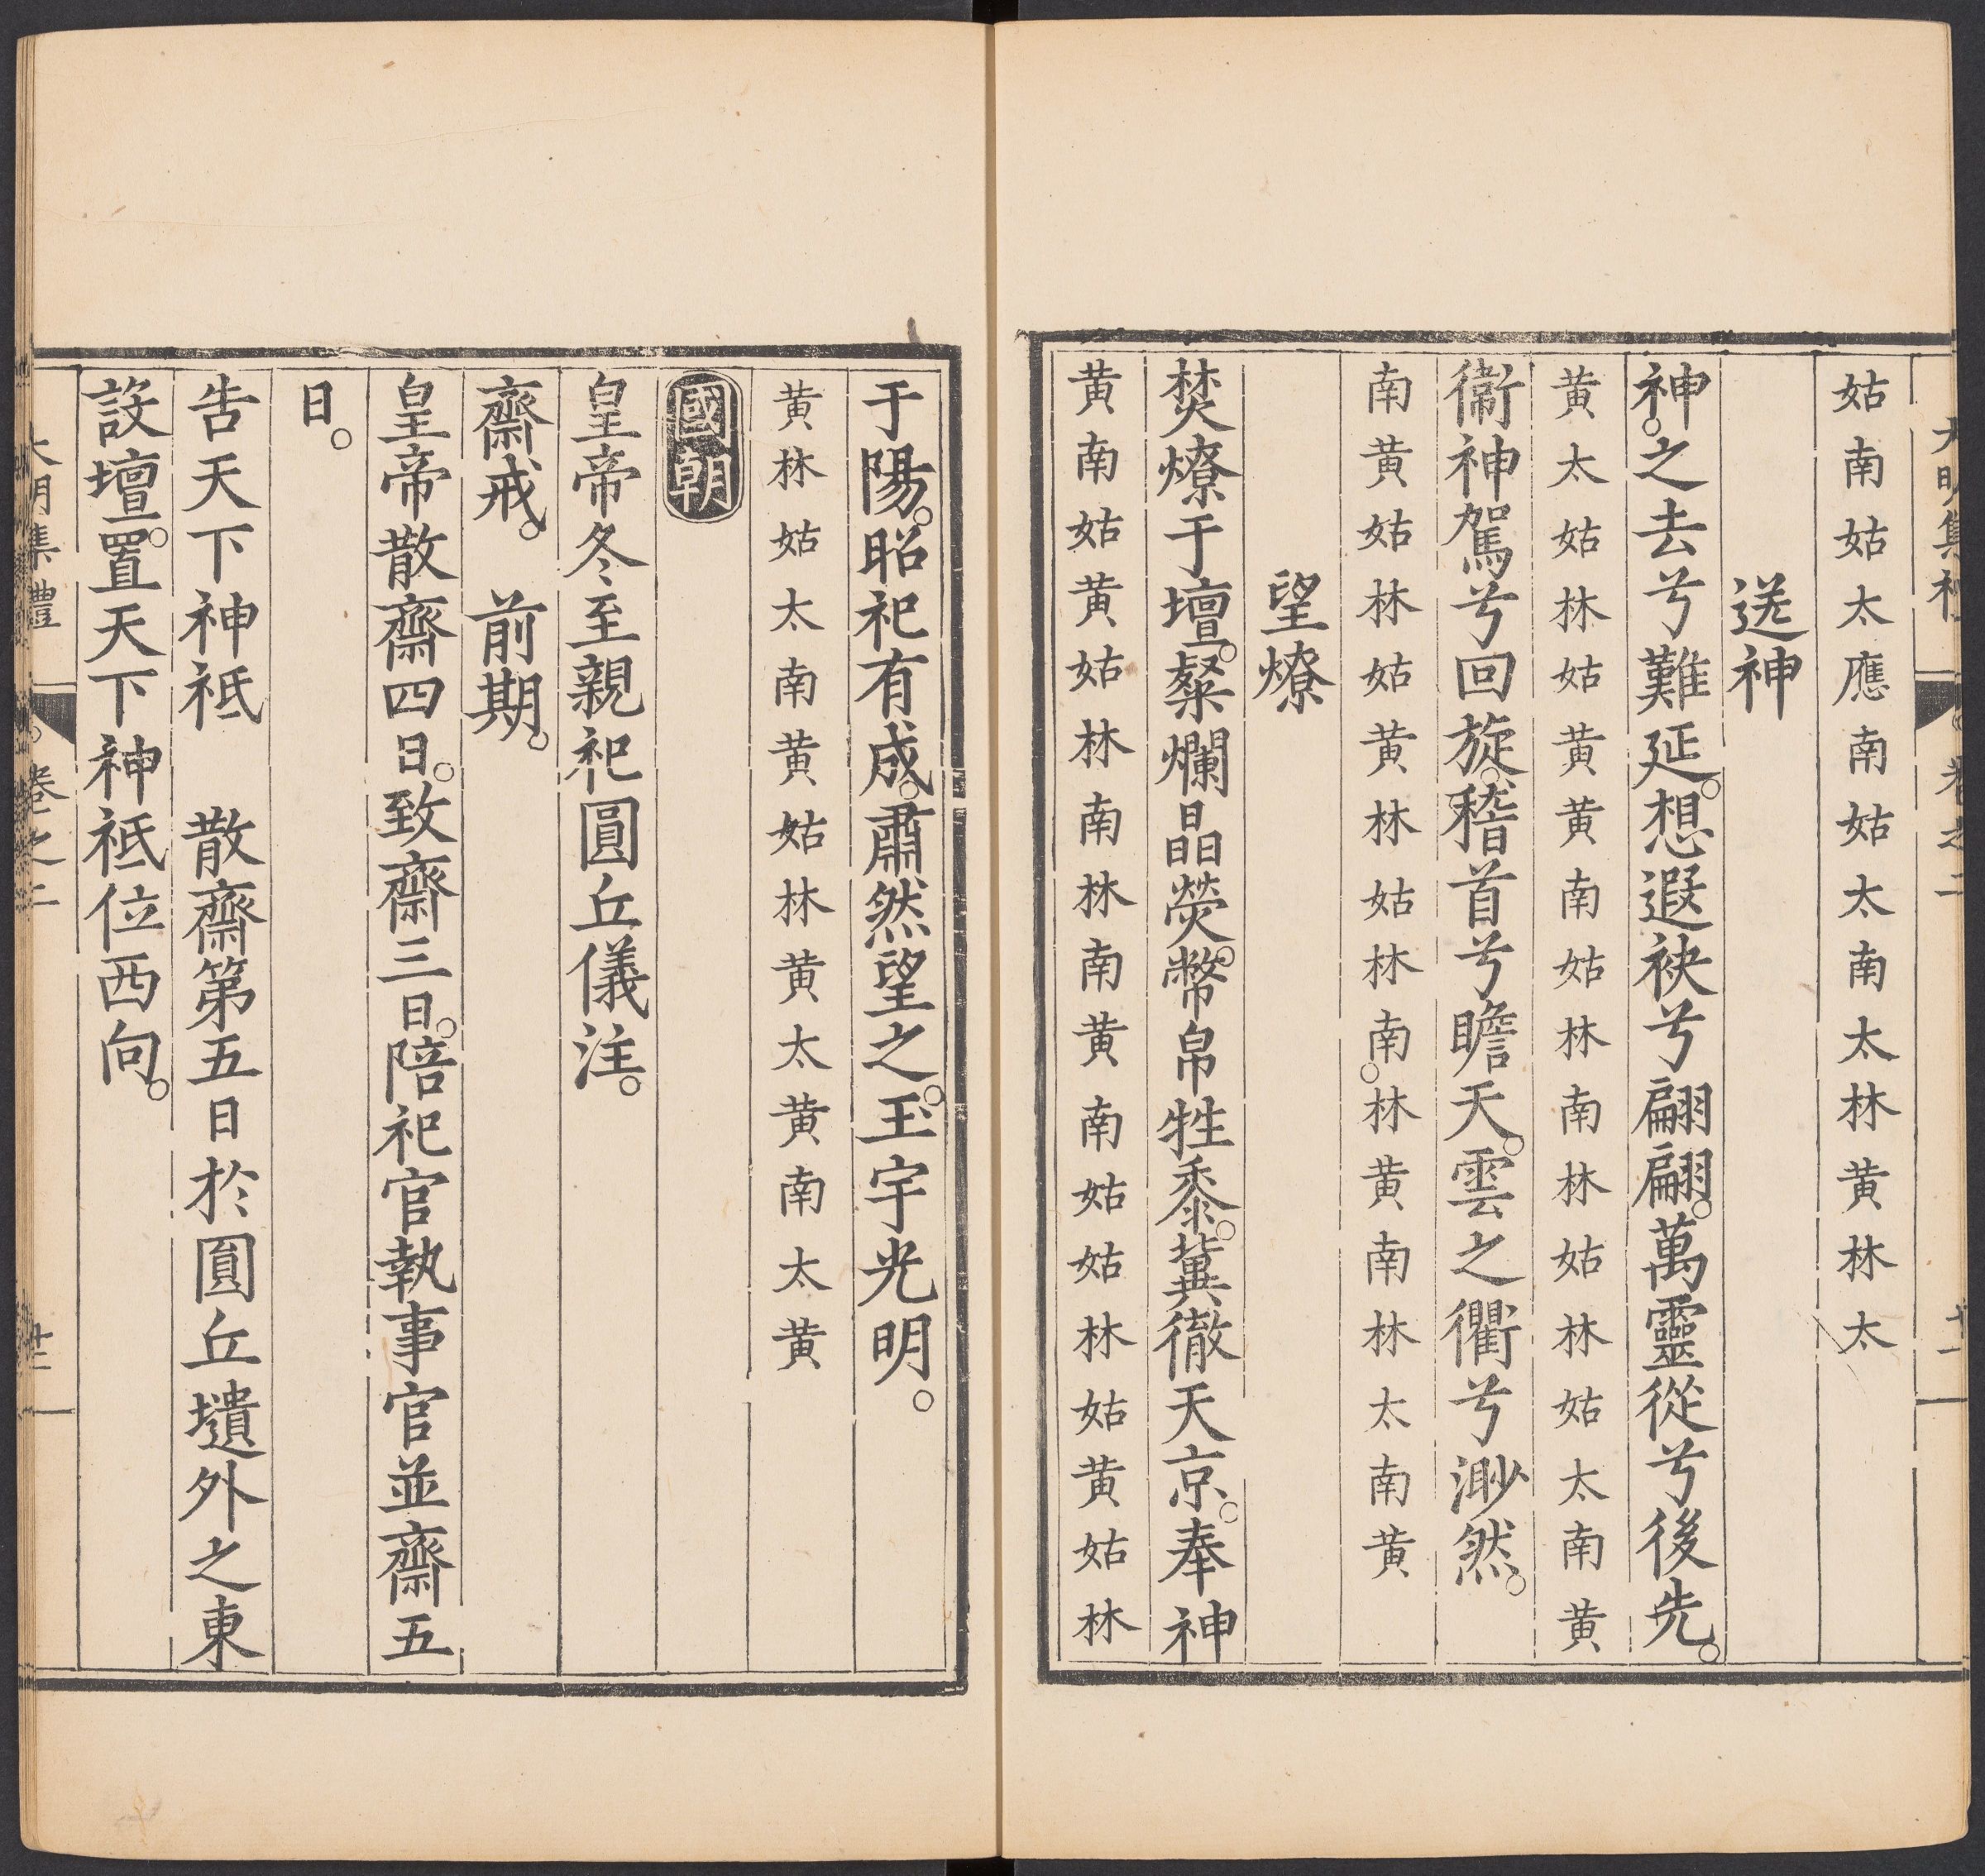 姑南姑太應南姑太南太林黄林太
送神
神之去兮難延。想遐袂兮翩翩。萬靈從兮後先。
黄太姑林姑黄黄南姑林南林姑林姑太南黄
衞神駕兮回旋。稽首兮瞻天。雲之衢兮渺然。
南黄姑林姑黄林姑林南。林黄南林太南黄
望燎
焚燎于壇。粲爛晶熒。幣帛牲黍。冀徹天京。奉神
黄南姑黄姑林南林南黄南姑姑林姑黄姑林
于陽。昭祀有成。肅然望之。玉宇光明。
黄林姑太南黄姑林黄太黄南太黄
國朝
皇帝冬至親祀圓丘儀注。
齋戒。前期。
皇帝散齋四日。致齋三日。陪祀官執事官並齋五
日。
告天下神祗 散齋第五日於圓丘壝外之東
設壇。置天下神祗位西向。
大明集禮 卷之二 十二